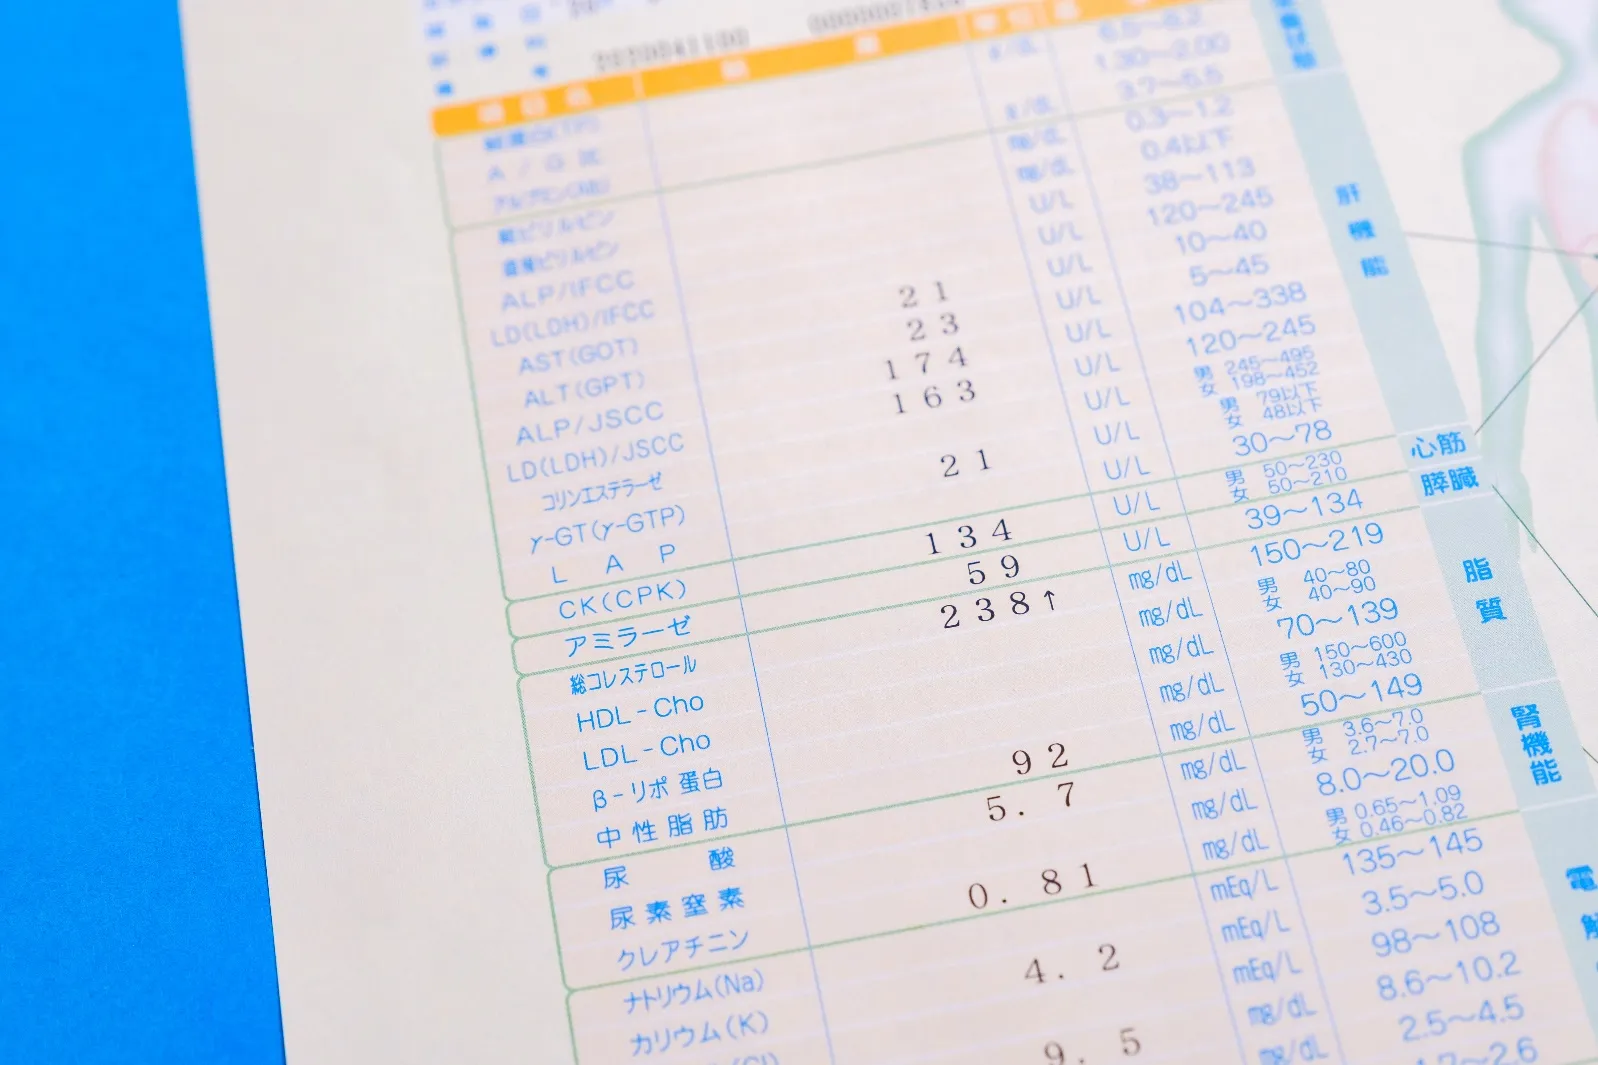 2020041100
項目名
A / G 比 1.30～2.00
g/dL 3.7～5.5
総ビリルビン mg/dL 0.3～1.2
直接ビリルビン mg/dL 0.4以下
ALP/IFCC U/L 38～113
LD(LDH)/IFCC U/L 120～245
AST(GOT) 21 U/L 10～40
ALT(GPT) 23 U/L 5～45
ALP/JSCC 174 U/L 104～338
LD(LDH)/JSCC 163 U/L 120～245
コリンエステラーゼ U/L 男 245～495 女 198～452
γ-GT(γ-GTP) 21 U/L 男 79以下 女 48以下
L A P U/L 30～78
肝機能
CK(CPK) 134 U/L 男 50～230 女 50～210 心筋
アミラーゼ 59 U/L 39～134 膵臓
総コレステロール 238↑ mg/dL 150～219
HDL-Cho mg/dL 男 40～80 女 40～90
LDL-Cho mg/dL 70～139
β-リポ蛋白 mg/dL 男 150～600 女 130～430
中性脂肪 92 mg/dL 50～149
脂質
尿酸 5.7 mg/dL 男 3.6～7.0 女 2.7～7.0
尿素窒素 mg/dL 8.0～20.0
クレアチニン 0.81 mg/dL 男 0.65～1.09 女 0.46～0.82
腎機能
ナトリウム(Na) mEq/L 135～145
カリウム(K) 4.2 mEq/L 3.5～5.0
mEq/L 98～108
9.5 mg/dL 8.6～10.2
mg/dL 2.5～4.5
電